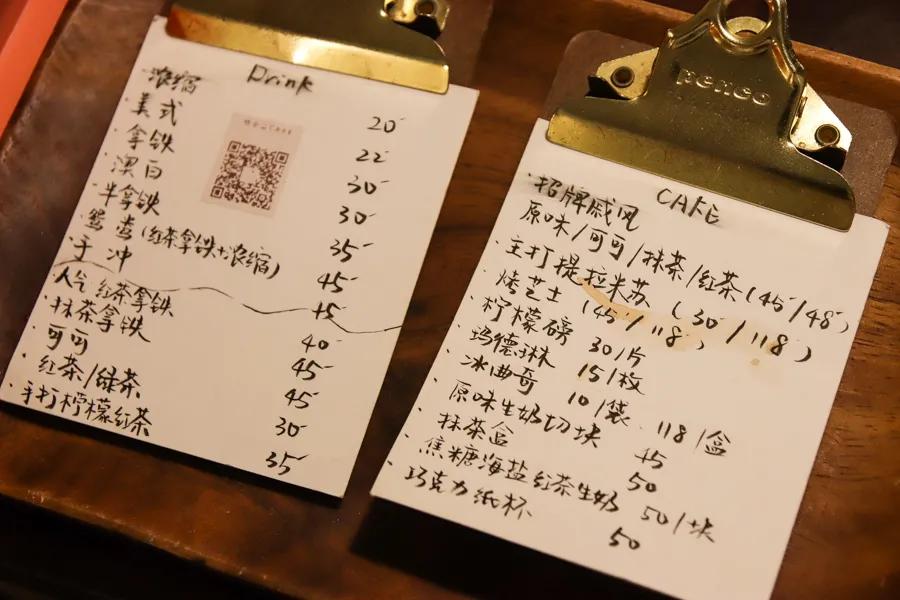 Drink
浓缩 20
美式 22
拿铁 30
澳白 30
半拿铁 35
鸳鸯(红茶拿铁+浓缩) 45
手冲 45
人气红茶拿铁 40
抹茶拿铁 45
可可 45
红茶/绿茶 30
手打柠檬红茶 35
penco
CAKE
招牌戚风
原味/可可/抹茶/红茶(45/48)
主打提拉米苏 (30/118)
烤芝士 (45/118)
柠檬磅 30/片
玛德琳 15/枚
冰曲奇 10/袋 118/盒
原味生奶切块 45
抹茶盒 50
焦糖海盐红茶生奶 50/块
巧克力纸杯 50